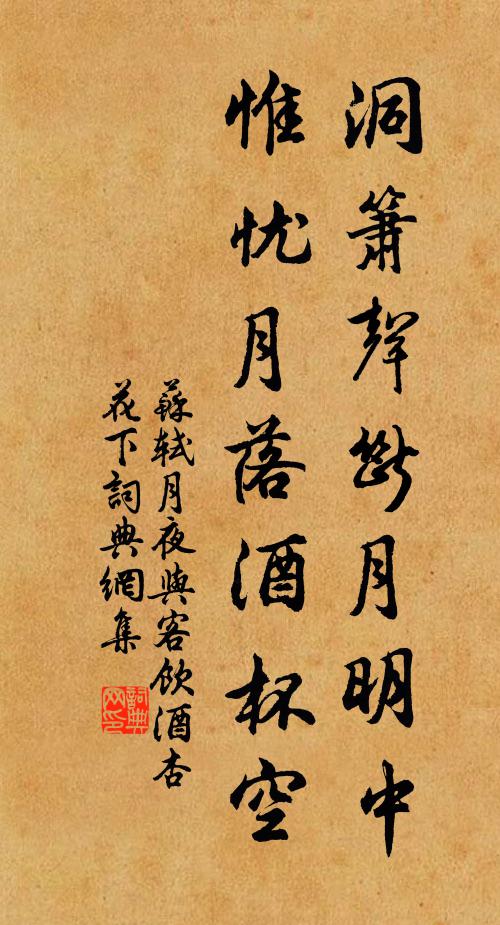 洞簫聲斷月明中
惟忧月落酒杯空
蘇軾月夜與客飲酒杏
花下詞典網集
詞典
网印